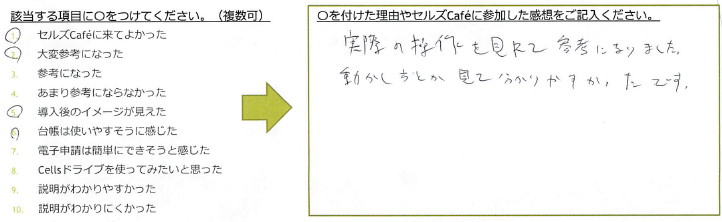 該当する項目に〇をつけてください。（複数可）
1. セルズCaféに来てよかった
2. 大変参考になった
3. 参考になった
4. あまり参考にならなかった
5. 導入後のイメージが見えた
6. 台帳は使いやすそうに感じた
7. 電子申請は簡単にできそうと感じた
8. Cellsドライブを使ってみたいと思った
9. 説明がわかりやすかった
10. 説明がわかりにくかった
〇を付けた理由やセルズCaféに参加した感想をご記入ください。
実際の操作を見れて参考になりました。
動かし方とか見て分かりやすかったです。